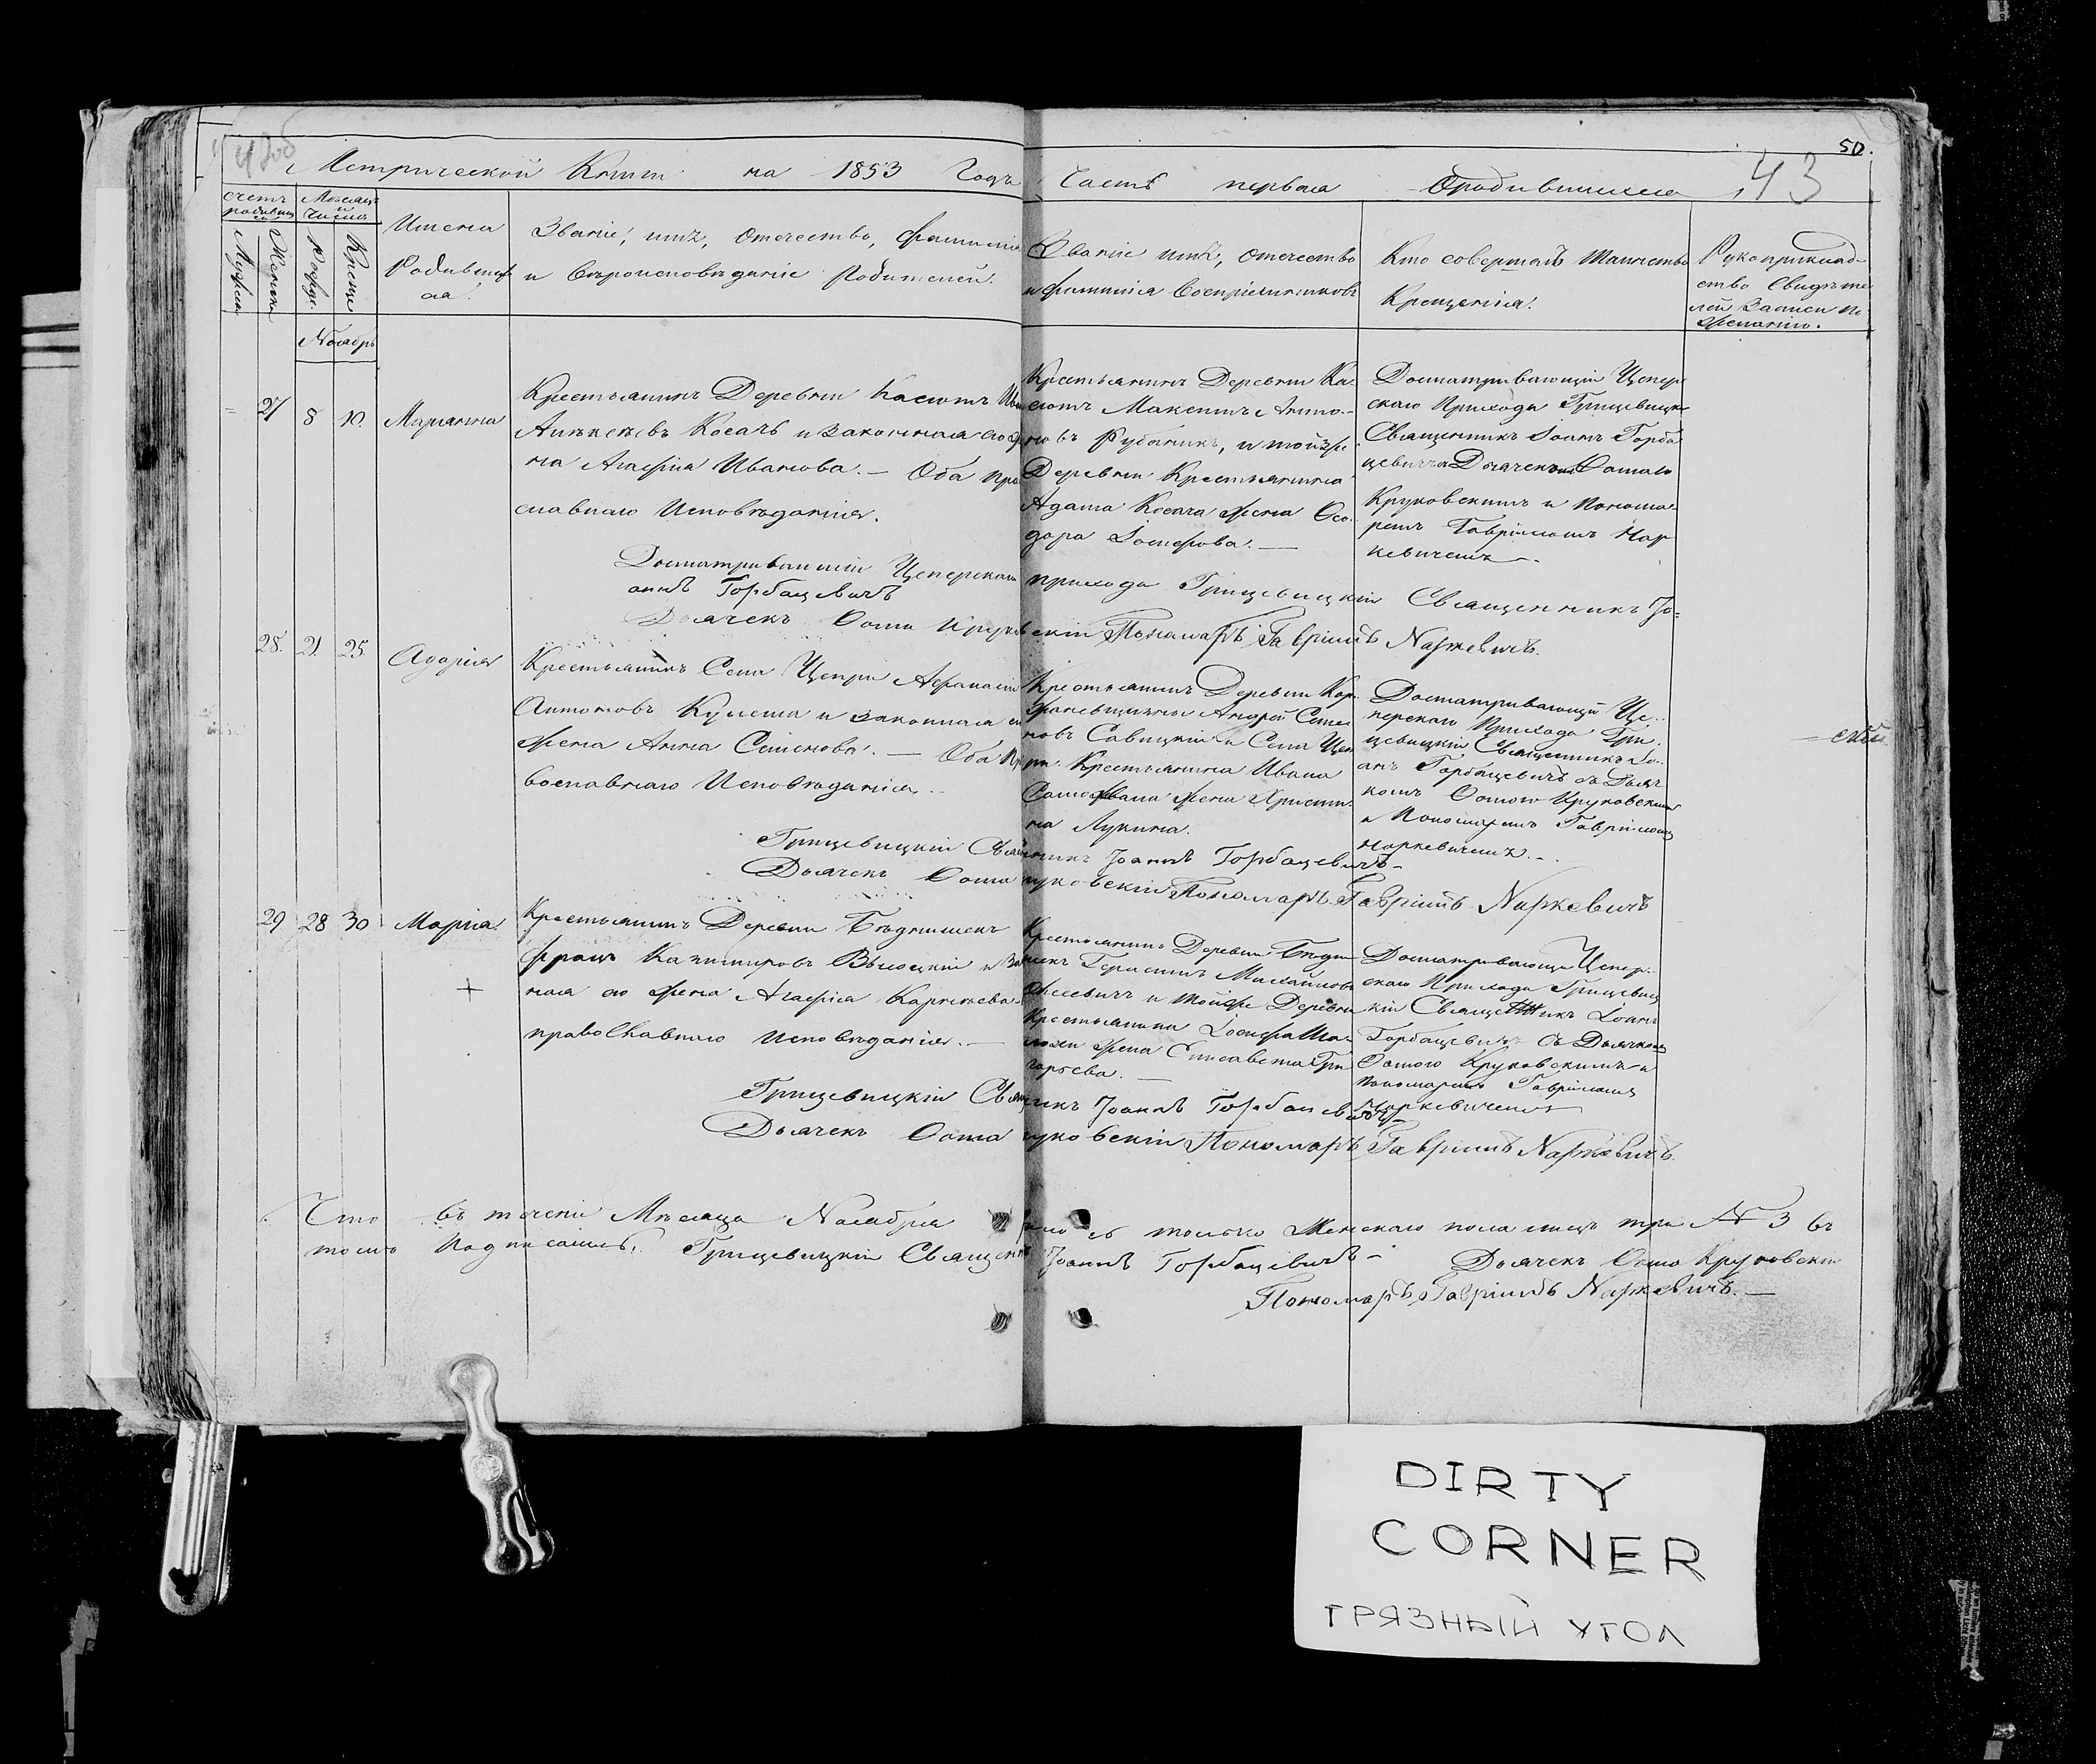 50.
43
Метрической Книги на 1853 Годъ Часть первая О родившихся
счетъ родивших Месяцъ и число
Мужеска Женска Рожде. Креще
Имена Родивших ся.
Званіе, имя, Отечество, Фамилія
и Вѣроисповѣданіе Родителей.
Званіе имя, отечество
и фамилія Воспріемниковъ
Кто совершалъ Таинство
Крещенія.
Рукоприклад-
ство Свидѣте
лей Записи по
Желанію.
Ноябрь
27 8 10. Марьянна
Крестьянинъ Деревни
Косачъ и Законная его
на Агафія Иванова. — Оба Пра
славнаго Исповѣданія.
Крестьянинъ Деревни Ка-
Рубаникъ, и тойже
Деревни Крестьянина
Адама Косача жена Ѳео-
дора Іосифова. —
Досматривающій Цепер
скаго Прихода Грицевицкій
Священникъ Іоаннъ Горба
цевичъ Дьячекъ Ѳомою
Круковскимъ и Понома-
ремъ Гавріиломъ Нар
кевичемъ.
Досматривающій Цеперскаго прихода Грицевицкій Священникъ Іо-
аннъ Горбацевичъ
Дьячекъ Ѳома Круковскій Пономарь Гавріилъ Наркевичъ.
28. 21. 25.
Крестьянинъ Села Цепри Афанасій
Антоновъ Кулеша и законная его
жена Анна Семенова. — Оба Пра
вославнаго Исповѣданія. —
Крестьянинъ Деревни Кор-
Андрей Семе
новъ Савицкій и Села Цеп
ри Крестьянина Ивана
жена Христи-
на Лукина.
Досматривающій Це-
перскаго Прихода Гри-
цевицкій Священникъ Іо-
аннъ Горбацевичъ съ Дьяч
комъ Ѳомою Круковскимъ
и Пономаремъ Гавріиломъ
Наркевичемъ. —
Грицевицкій Священникъ Іоаннъ Горбацевичъ —
Дьячекъ Ѳома Круковскій Пономарь Гавріилъ Наркевичъ
29 28 30 Марія
+
Крестьянинъ Деревни
Францъ Казимировъ Высоцкій и За
ная его жена Агафія
православнаго Исповѣданія. —
Крестьянинъ Деревни
Герасимъ Михайловъ
и тойже Деревни
Крестьянина Іосифа
жена Елисавета Гри
горьева. —
Досматривающій Цепер-
скаго Прихода Грицевиц
кій Священникъ Іоаннъ
Горбацевичъ Съ Дьячкомъ
Ѳомою Круковскимъ и
пономаремъ Гавріиломъ
Наркевичемъ
Грицевицкій Священникъ Іоаннъ Горбацевичъ
Дьячекъ Ѳома Круковскій Пономарь Гавріилъ Наркевичъ.
Что въ теченіи Мѣсяца Ноября только Женскаго пола лицъ три № 3 въ
томъ подписались. Грицевицкій Священникъ Іоаннъ Горбацевичъ — Дьячекъ Ѳома Круковскій
Пономарь Гавріилъ Наркевичъ. —
DIRTY
CORNER
ГРЯЗНЫЙ УГОЛ